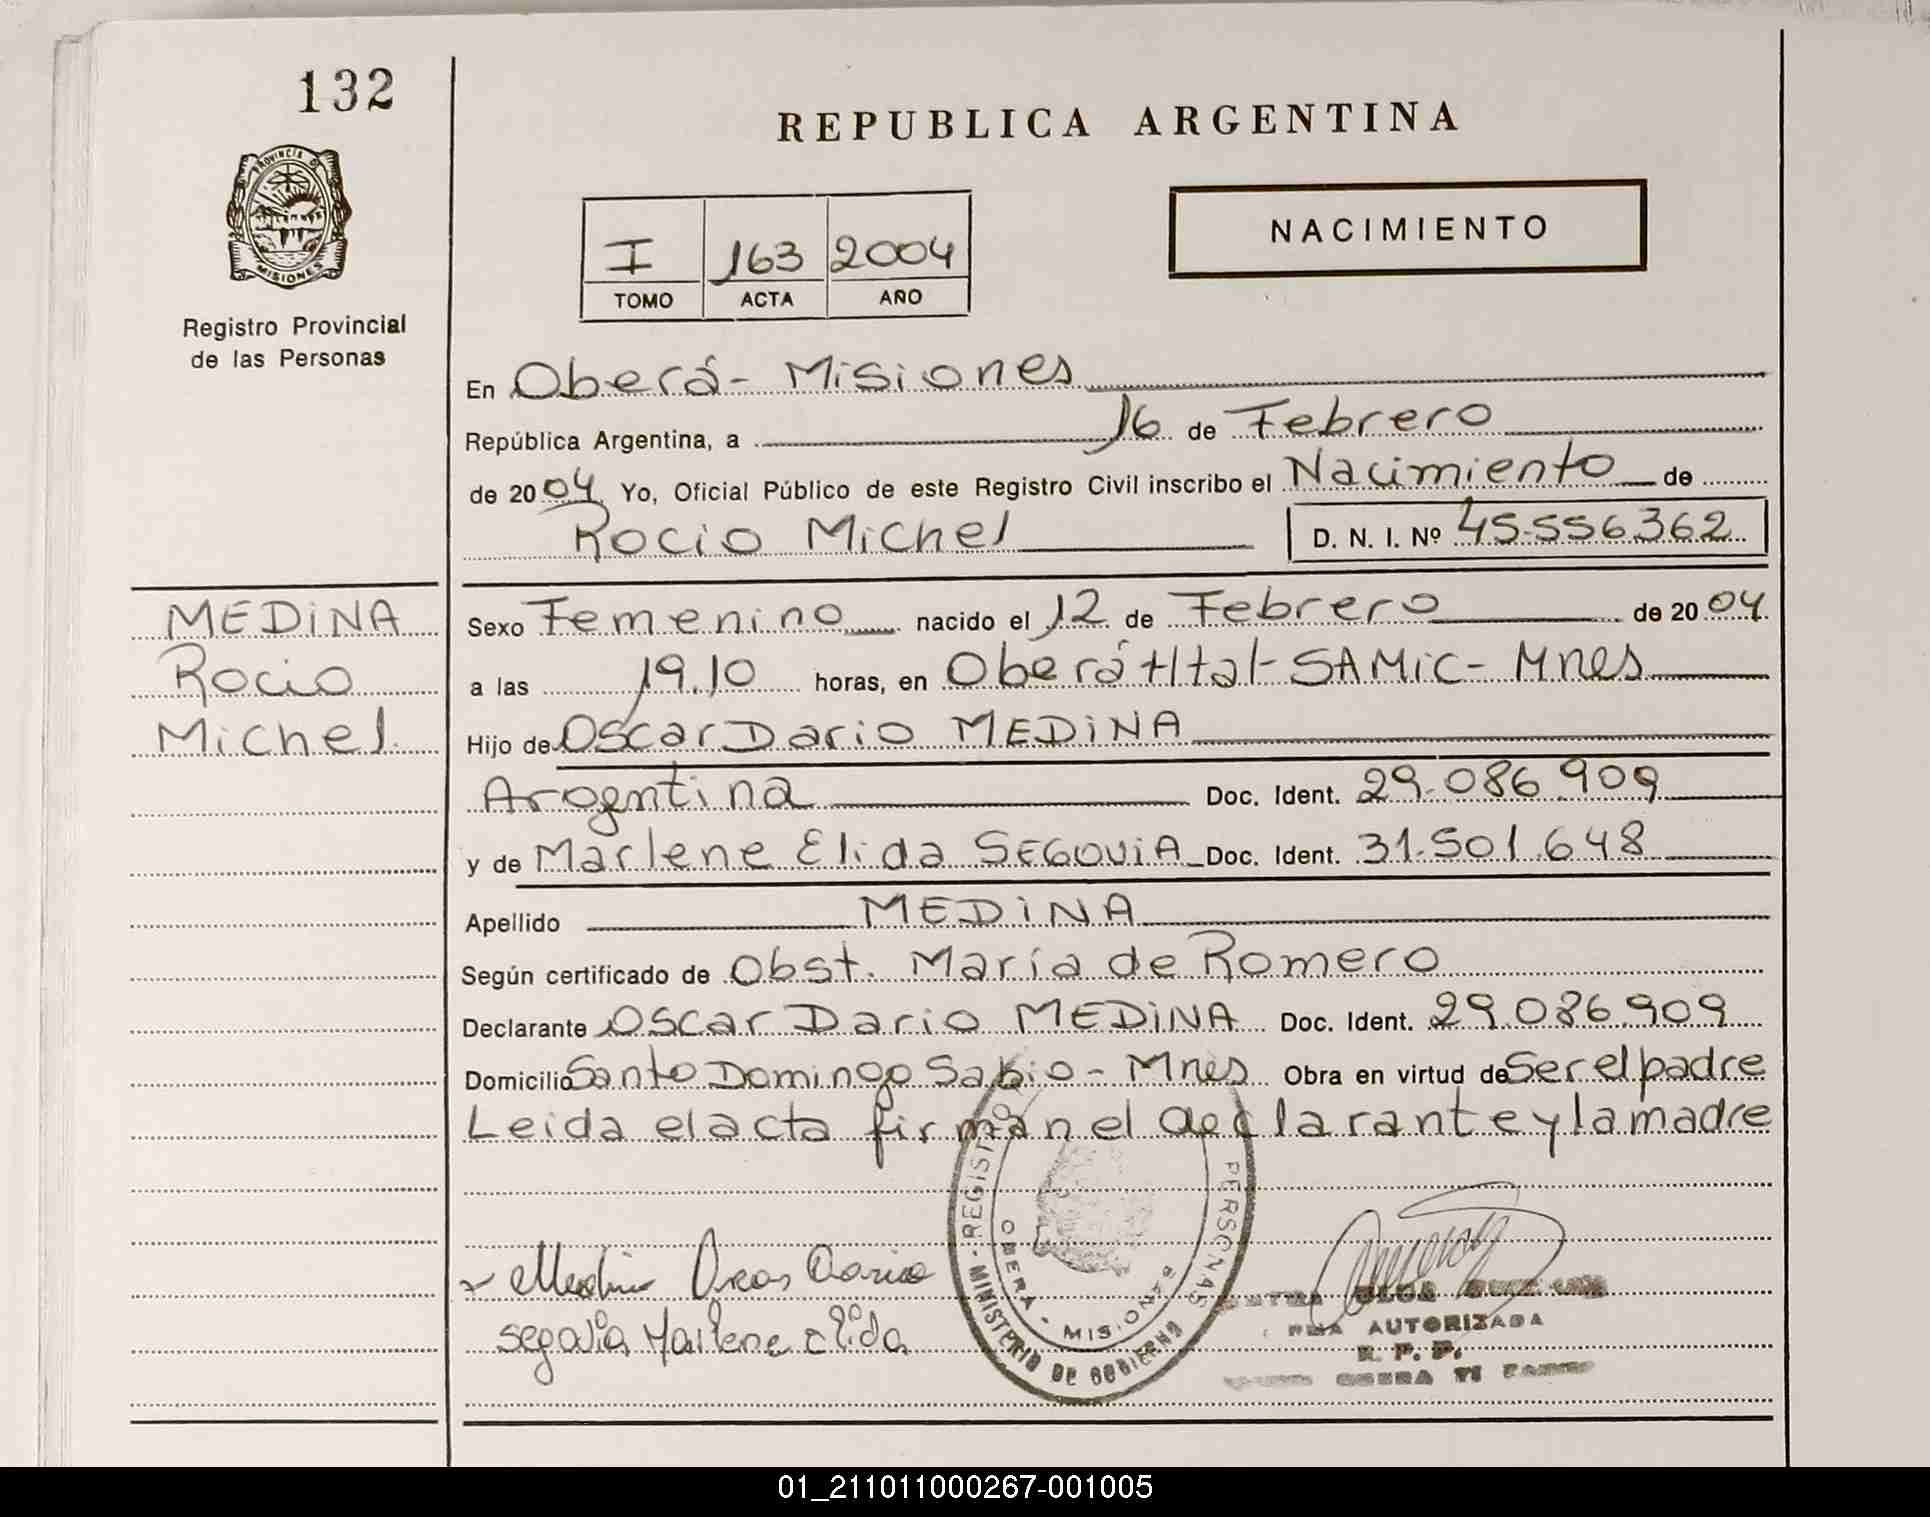 132
PROVINCIA DE
MISIONES
Registro Provincial
de las Personas
REPUBLICA ARGENTINA
I 163 2004
TOMO ACTA AÑO
NACIMIENTO
En Oberá - Misiones
República Argentina, a 16 de Febrero
de 2004 Yo, Oficial Público de este Registro Civil inscribo el Nacimiento de
Rocio Michel D. N. I. Nº 45.556362
MEDINA
Rocio
Michel.
Sexo Femenino nacido el 12 de Febrero de 2004
a las 19.10 horas, en Oberá Htal - SAMIC - Mnes
Hijo de Oscar Dario MEDINA
Argentina Doc. Ident. 29.086.909
y de Marlene Elida SEGOVIA Doc. Ident. 31.501.648
Apellido MEDINA
Según certificado de Obst. María de Romero
Declarante Oscar Dario MEDINA Doc. Ident. 29.086.909
Domicilio Santo Domingo Sabio - Mnes Obra en virtud de Ser el padre
Leida el acta firman el declarante y la madre
Medina Oscar Dario
Segovia Marlene Elida
REGISTRO PERSONAS
OBERA - MISIONES
MINISTERIO DE GOBIERNO
AUTORIZADA
R. P. P.
OBERA
01_211011000267-001005